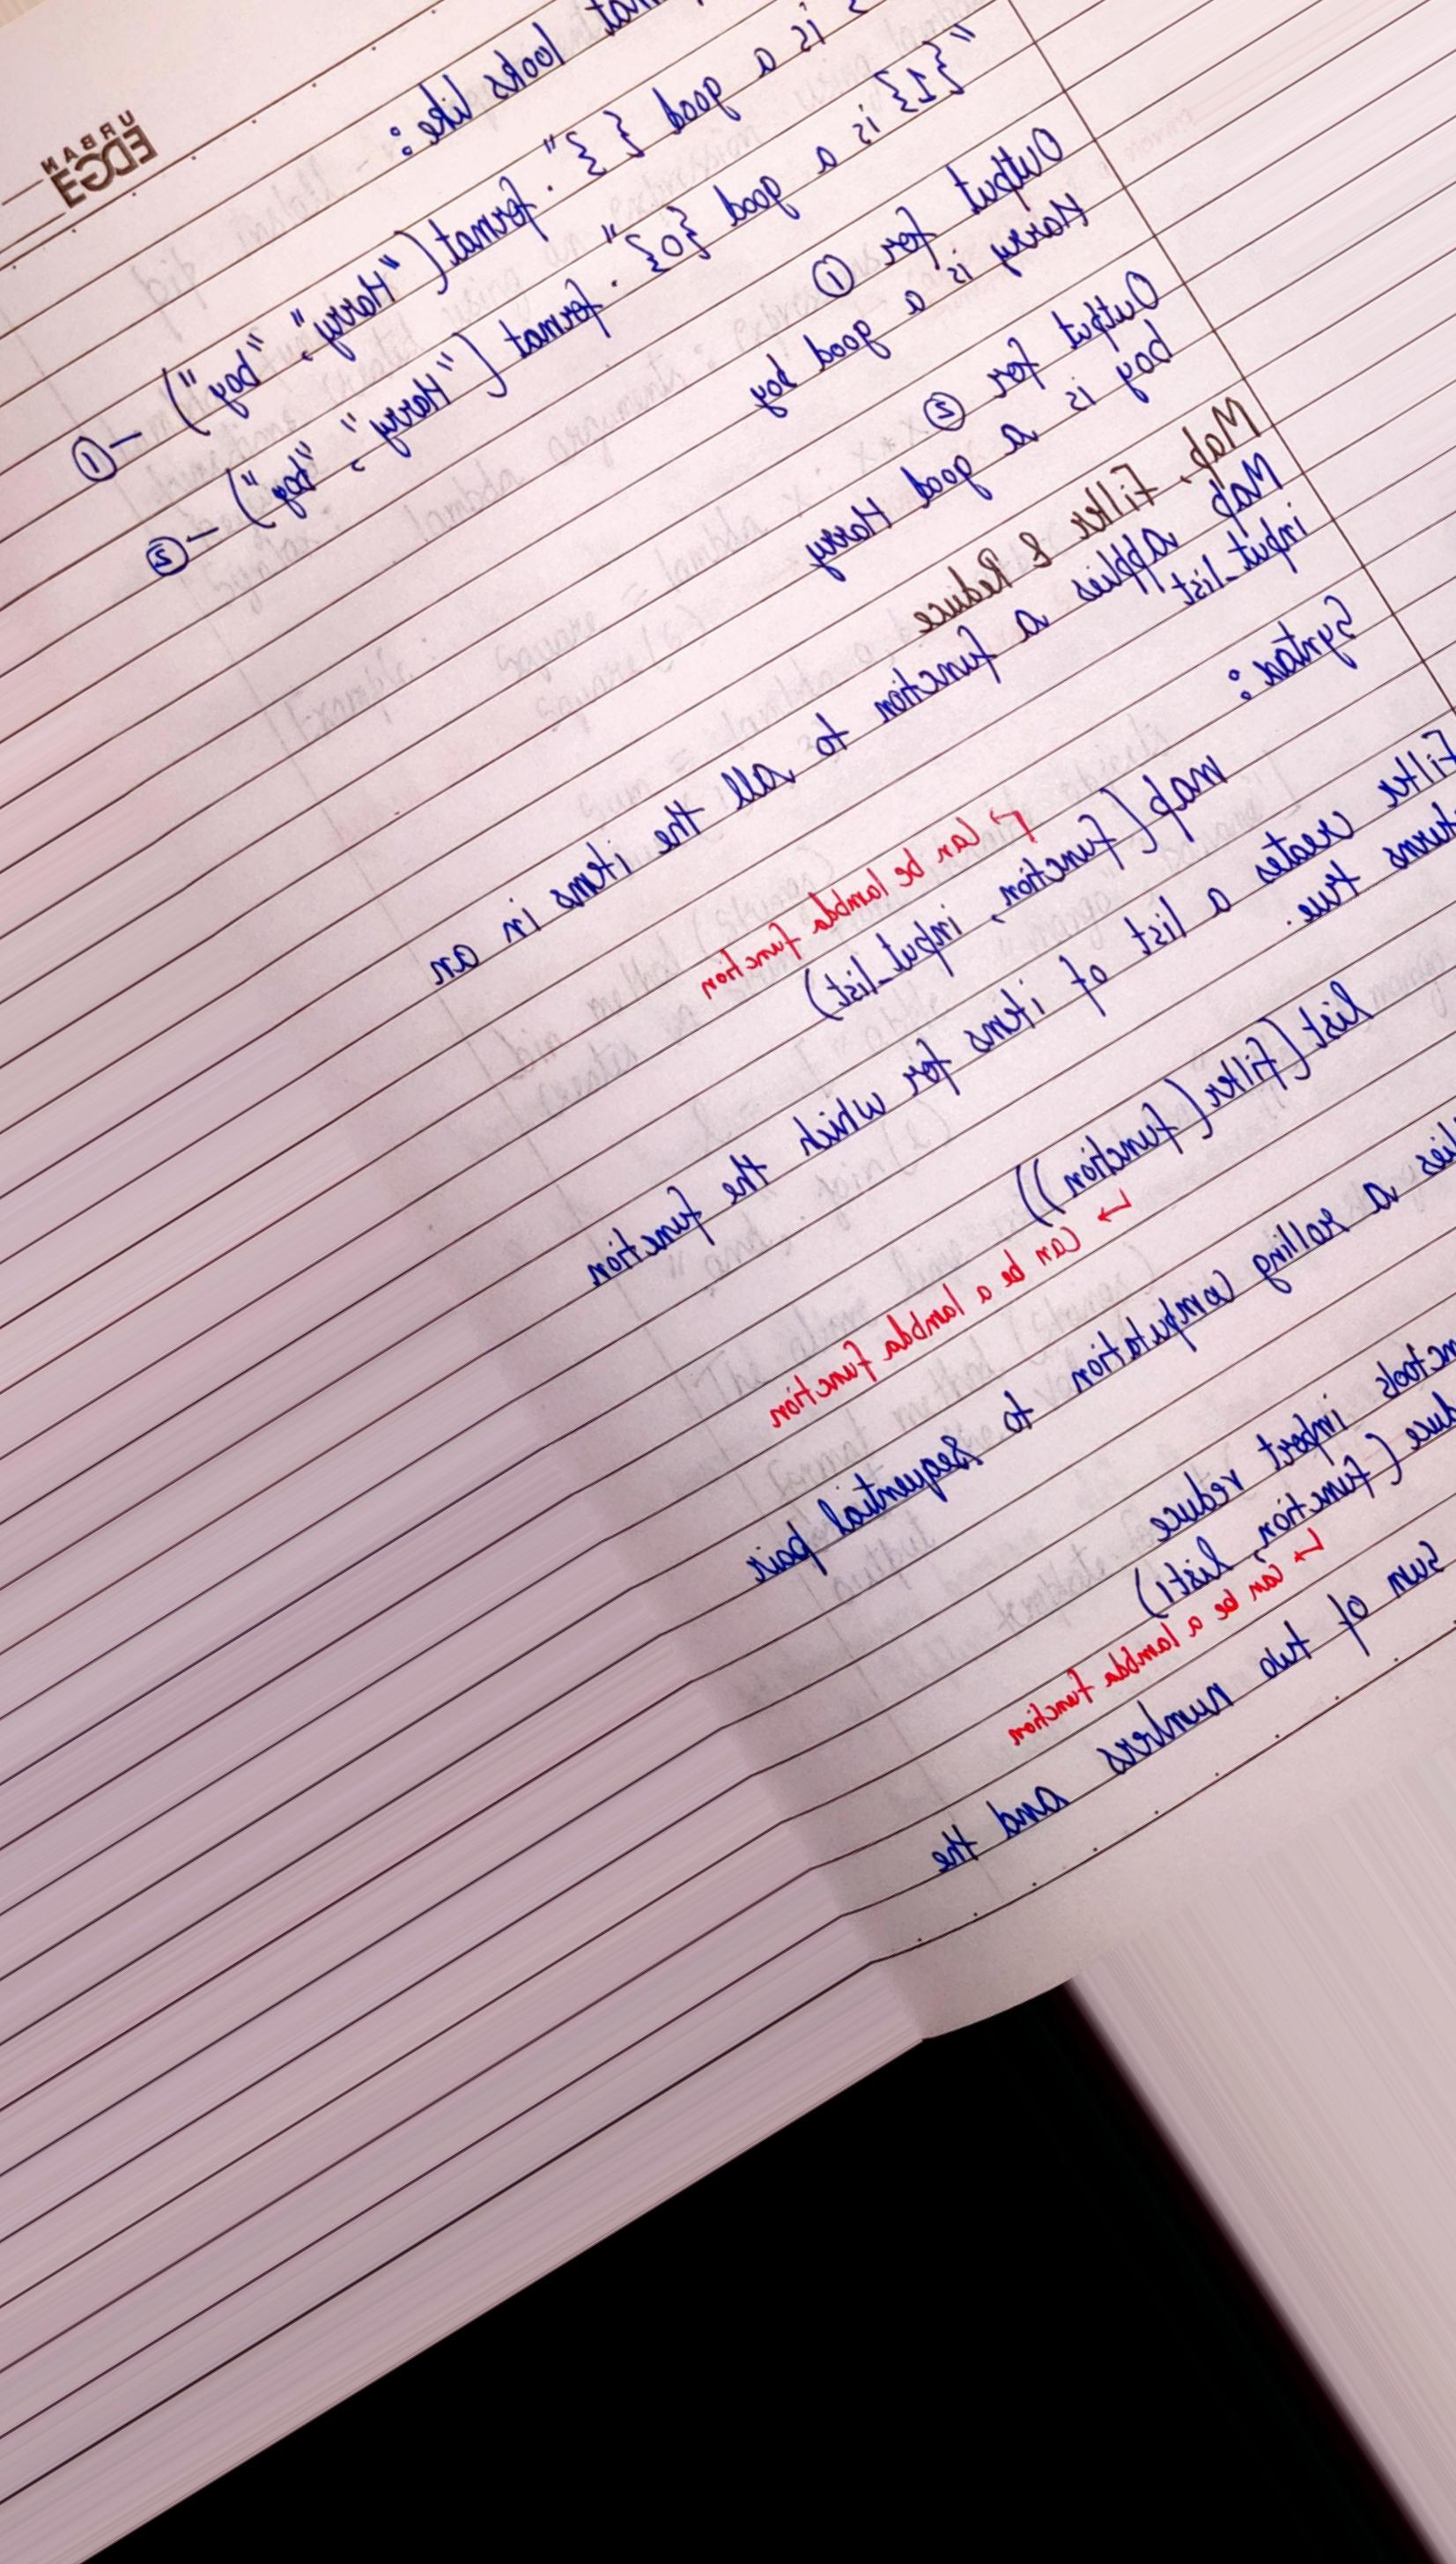 URBAN
EDGE
looks like:
is a good { }". format( "Harry", "boy") —①
"{1} is a good {0}". format ("Harry", "boy") —②
Output for ①
Harry is a good boy
Output for ②
boy is a good Harry
Map, Filter & Reduce
Map applies a function to all the items in an
input_list
Syntax:
map( function, input_list)
↱ Can be lambda function
Filter creates a list of items for which the function
true.
list (filter( function ))
↳ Can be a lambda function
a rolling computation to sequential pair
import reduce
( function, list1)
↳ Can be a lambda function
sum of two numbers and the